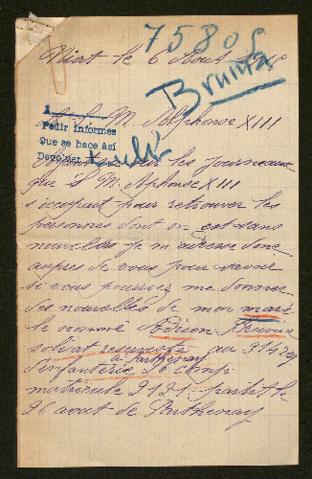 75808
Niort le 6 Août
Bruma
A S. M. Alphonse XIII
Pedir informes
Que se hace así
Devolver
par les journeaux
que S M. Alphonse XIII
s'occupait pour retrouver les
personnes dont on est sans
nouvelles je m'adresse donc
aupres de vous pour savoir
si vous pourriez me donner
des nouvelles de mon mari
le nommé Adrien Bruma
soldat reserviste au 314 reg
a Parthenay
d'infanterie 26 comp
matricule 2121 partit le
26 aout de Parthenay